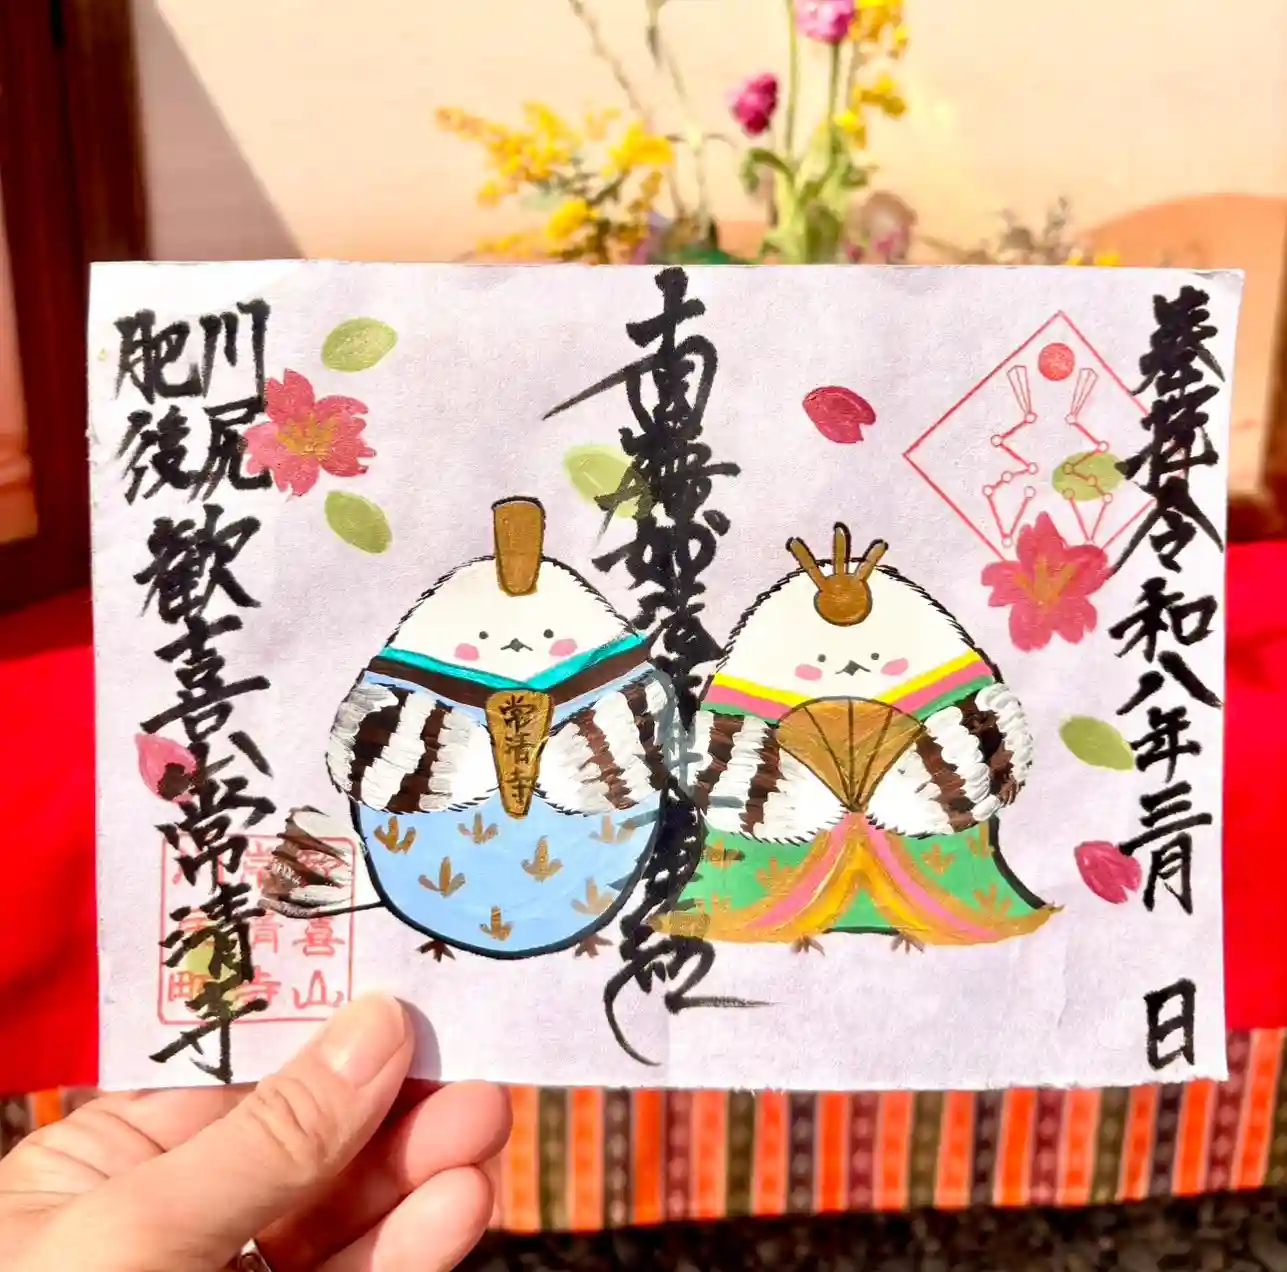 奉拝 令和八年三月 日
南無妙法蓮華経
常清寺
川尻
肥後
歓喜山 常清寺
歓喜山
常清寺